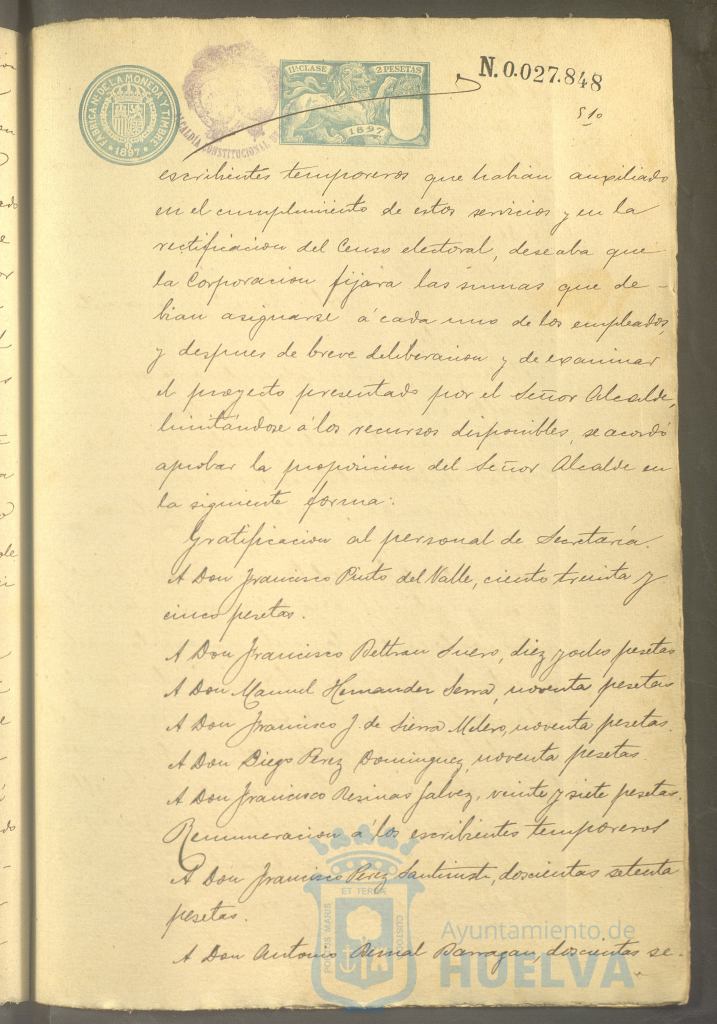 FABRICA Nl. DE LA MONEDA Y TIMBRE
1897
ALCALDIA CONSTITUCIONAL DE
11ª CLASE 2 PESETAS
1897
N.0.027.848
510
escribientes temporeros que habian auxiliado
en el cumplimiento de estos servicios y en la
rectificacion del Censo electoral, deseaba que
la Corporacion fijara las sumas que de-
bian asignarse á cada uno de los empleados,
y despues de breve deliberacion y de examinar
el proyecto presentado por el Señor Alcalde,
limitándose á los recursos disponibles, se acordó
aprobar la proposicion del Señor Alcalde en
la siguiente forma:
Gratificacion al personal de Secretaría.
A Don Francisco Pinto del Valle, ciento treinta y
cinco pesetas.
A Don Francisco Beltran Suero, diez y ocho pesetas
A Don Manuel Hernandez Serra, noventa pesetas
A Don Francisco J. de Sierra Melero, noventa pesetas.
A Don Diego Perez Dominguez, noventa pesetas.
A Don Francisco Resinas Galvez, veinte y siete pesetas.
Remuneracion á los escribientes temporeros
A Don Francisco Perez doscientas setenta
pesetas.
A Don Antonio Bernal Barragan, doscientas se-
PORTUS MARIS ET TERRAE CUSTODIA
Ayuntamiento de
HUELVA